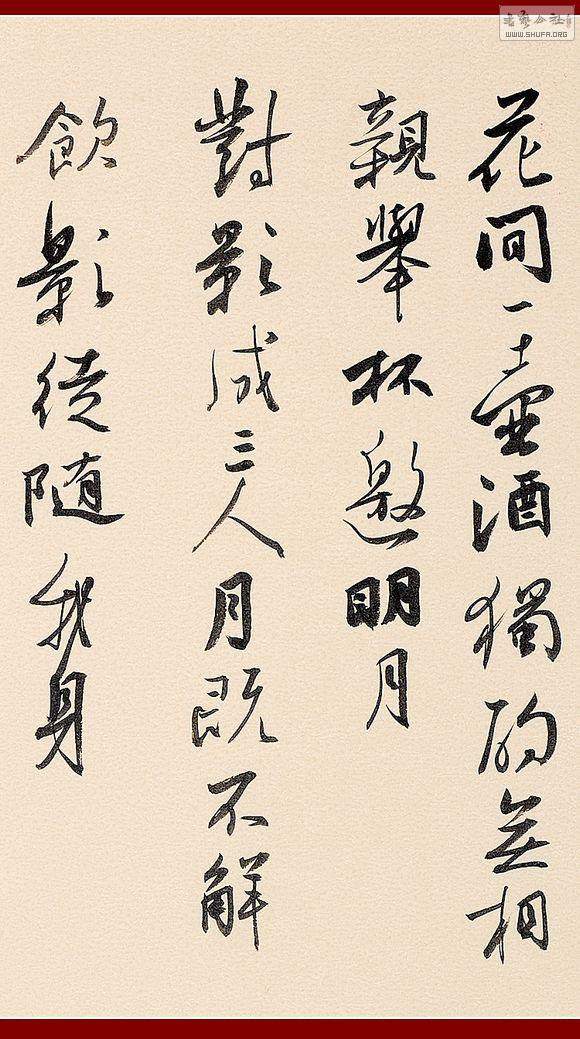 花间一壺酒獨酌無相
親舉杯邀明月
對影成三人月既不解
飲影徒随我身
WWW.SHUFA.ORG